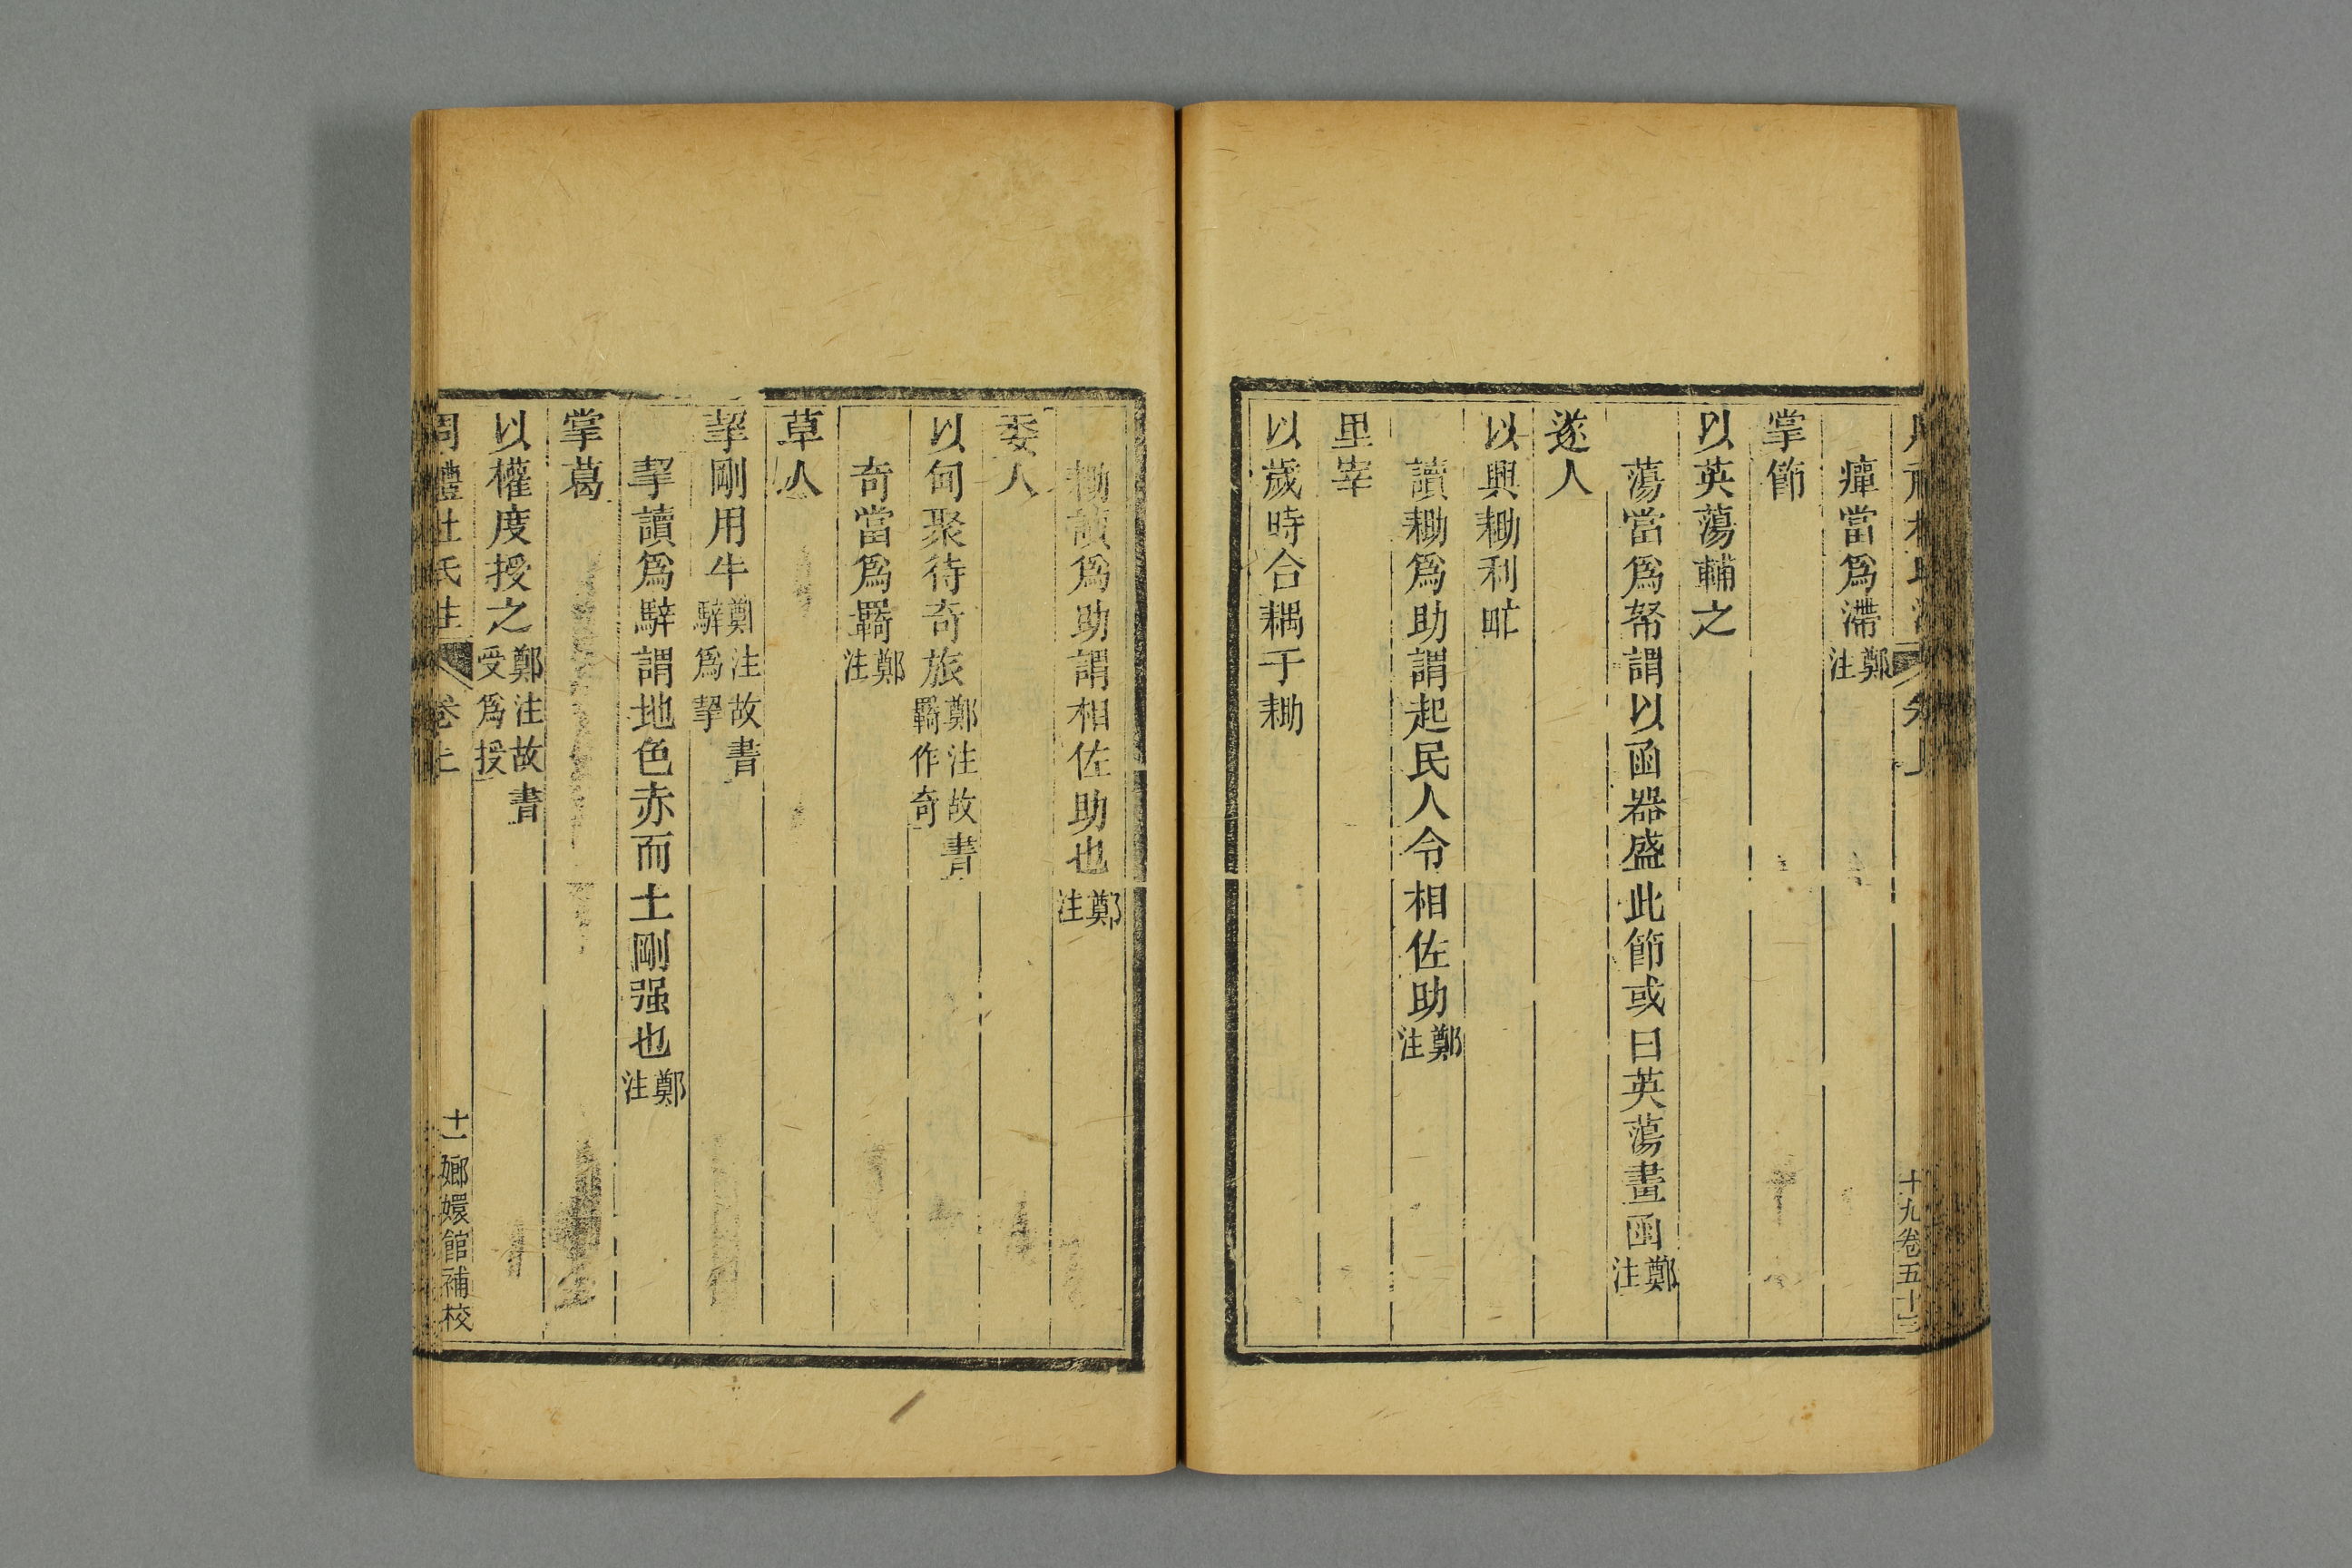 癉當爲滯鄭注
掌節
以英蕩輔之
蕩當爲帑謂以函器盛此節或曰英蕩畫函鄭注
遂人
以興耡利甿
讀耡爲助謂起民人令相佐助鄭注
里宰
以歲時合耦于耡
十九卷五十三
耡讀爲助謂相佐助也鄭注
委人
以甸聚待奇旅鄭注故書羇作奇
奇當爲羇鄭注
草人
挈剛用牛鄭注故書騂爲挈
挈讀爲騂謂地色赤而土剛强也鄭注
掌葛
以權度授之鄭注故書受爲授
周禮杜氏注 卷上 十一 嫏嬛館補校